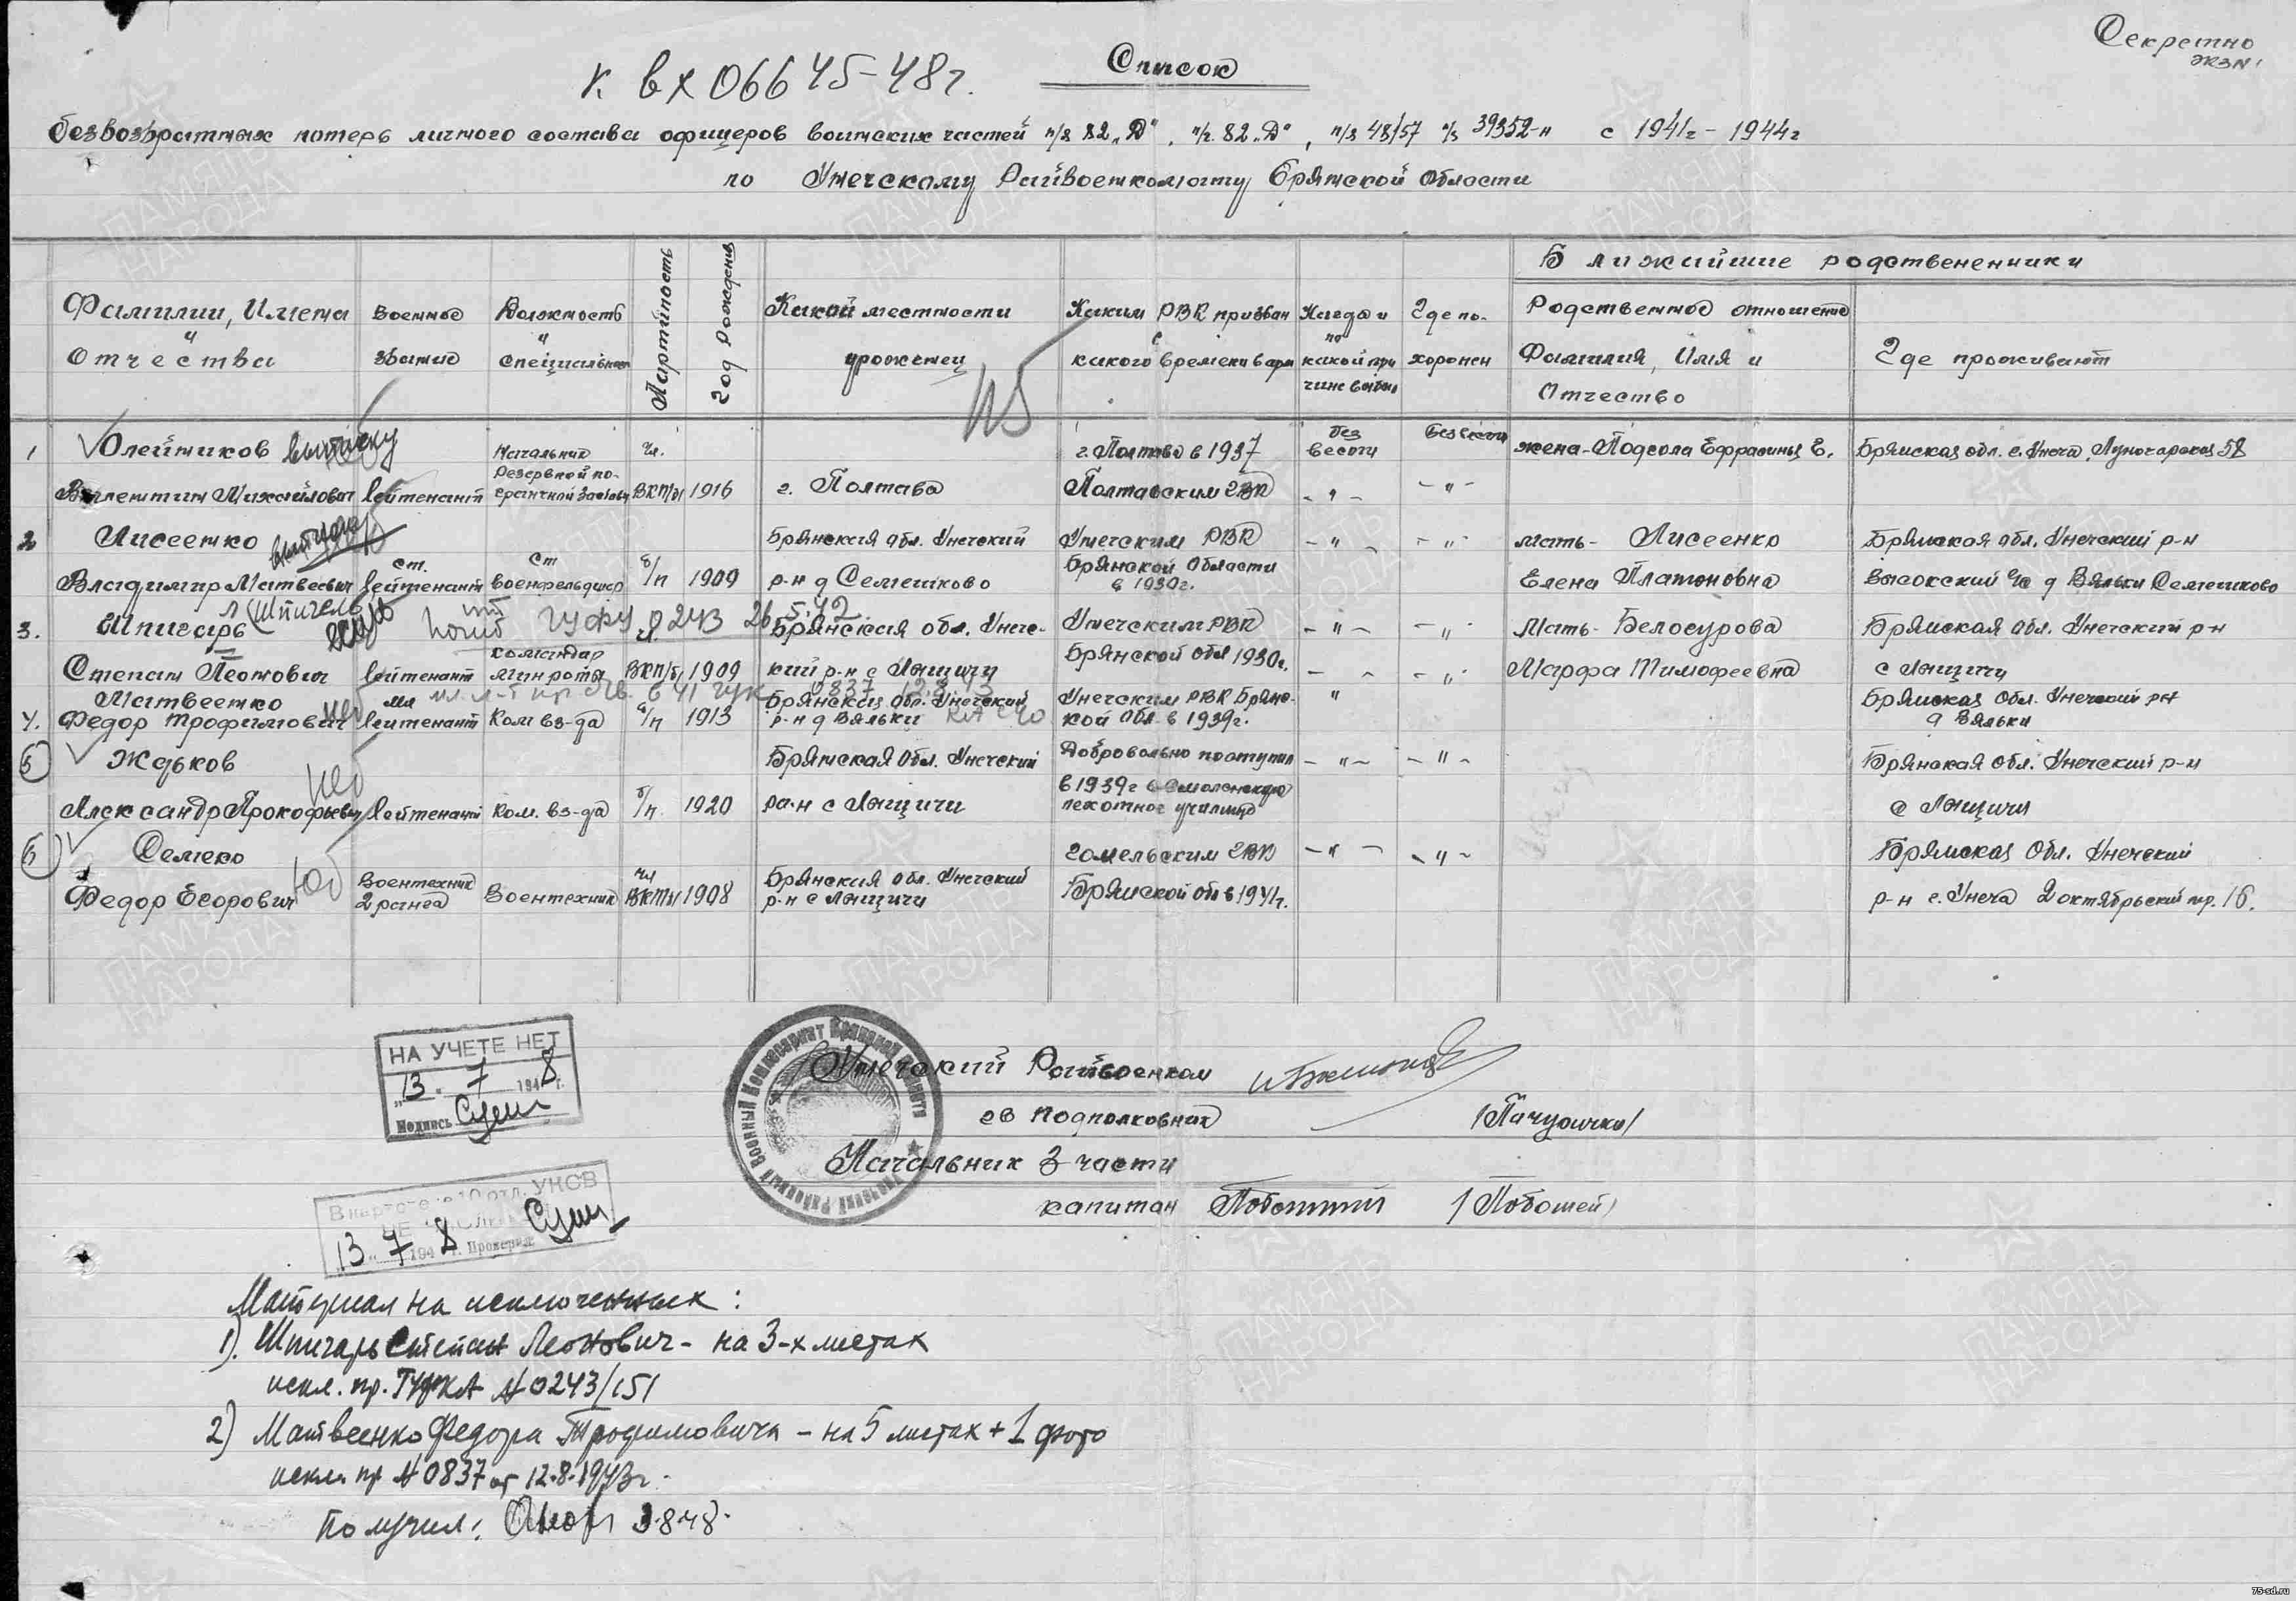 Секретно
экз №1
к вх 06645-48г.
Список
безвозвратных потерь личного состава офицеров воинских частей п/я 82 „Д“, п/я. 82 „Д“, п/я 48/57 п/я 39352-н с 1941г - 1944г
по Унечскому Райвоенкомату Брянской Области
Фамилии, Имена и Отчества
Военное звание
Должность и специальность
Партийность
Год рождения
Какой местности уроженец
Каким РВК призван с какого времени в арм
Когда и по какой причине выбыл
Где похоронен
Ближайшие родственники
Родственное отношение Фамилия, Имя и Отчество
Где проживают
1 Олейников Валентин Михайлович лейтенант Начальник резервной пограничной заставы чл. ВКП/б/ 1916 г. Полтава г. Полтава в 1937 Полтавским ГВК без вести без вести жена - Подсола Ефрасинья Е. Брянская обл. г. Унеча, Луначарская 58
2 Лисеенко Владимир Матвеевич ст. лейтенант ст военфельдшер б/п 1909 Брянская обл. Унечский р-н д Семешково Унечским РВК Брянской Области в 1930г. - " - - " - мать - Лисеенко Елена Платоновна Брянская обл. Унечский р-н Высокский с/с д Вяльки Семешково
3. Шпигарь Степан Леонович лейтенант командир минроты ВКП/б/ 1909 Брянская обл. Унечский р-н с Лыщичи Унечским РВК Брянской Обл 1930г. - " - - " - Мать - Белосурова Марфа Тимофеевна Брянская обл. Унечский р-н с Лыщичи
4. Матвеенко Федор Трофимович мл лейтенант Ком вз-да б/п 1913 Брянская обл. Унечский р-н д Вяльки Унечским РВК Брянской обл в 1939г. " Брянская Обл. Унечский р-н д Вяльки
5 Жадьков Александр Прокофьевич лейтенант Ком. вз-да б/п. 1920 Брянская Обл. Унечский ра-н с Лыщичи Добровольно поступил в 1939г в Смоленское пехотное училище - " - - " - Брянская обл. Унечский р-н с Лыщичи
6 Семеко Федор Егорович Воентехник 2 ранга Воентехник чл ВКП/б/ 1908 Брянская обл. Унечский р-н с Лыщичи Гомельским ГВК Брянской обл в 1941г. - " - - " - Брянская Обл. Унечский р-н г. Унеча 2 октябрьский пер. 16.
НА УЧЕТЕ НЕТ
„13. 7 1948г.
Подпись
Унечский Райвоенком
гв подполковник
Начальник 3 части
капитан
13 „ 7 1948 г. Проверил
Материал на исключенных:
1). Шпигарь Степан Леонович - на 3-х листах
искл. пр. ГУФКА №0243/151
2) Матвеенко Федора Трофимовича - на 5 листах + 1 фото
искл. пр №0837 от 12.8.1943г.
Получил: 3.8.48.
ПАМЯТЬ НАРОДА
75-sd.ru